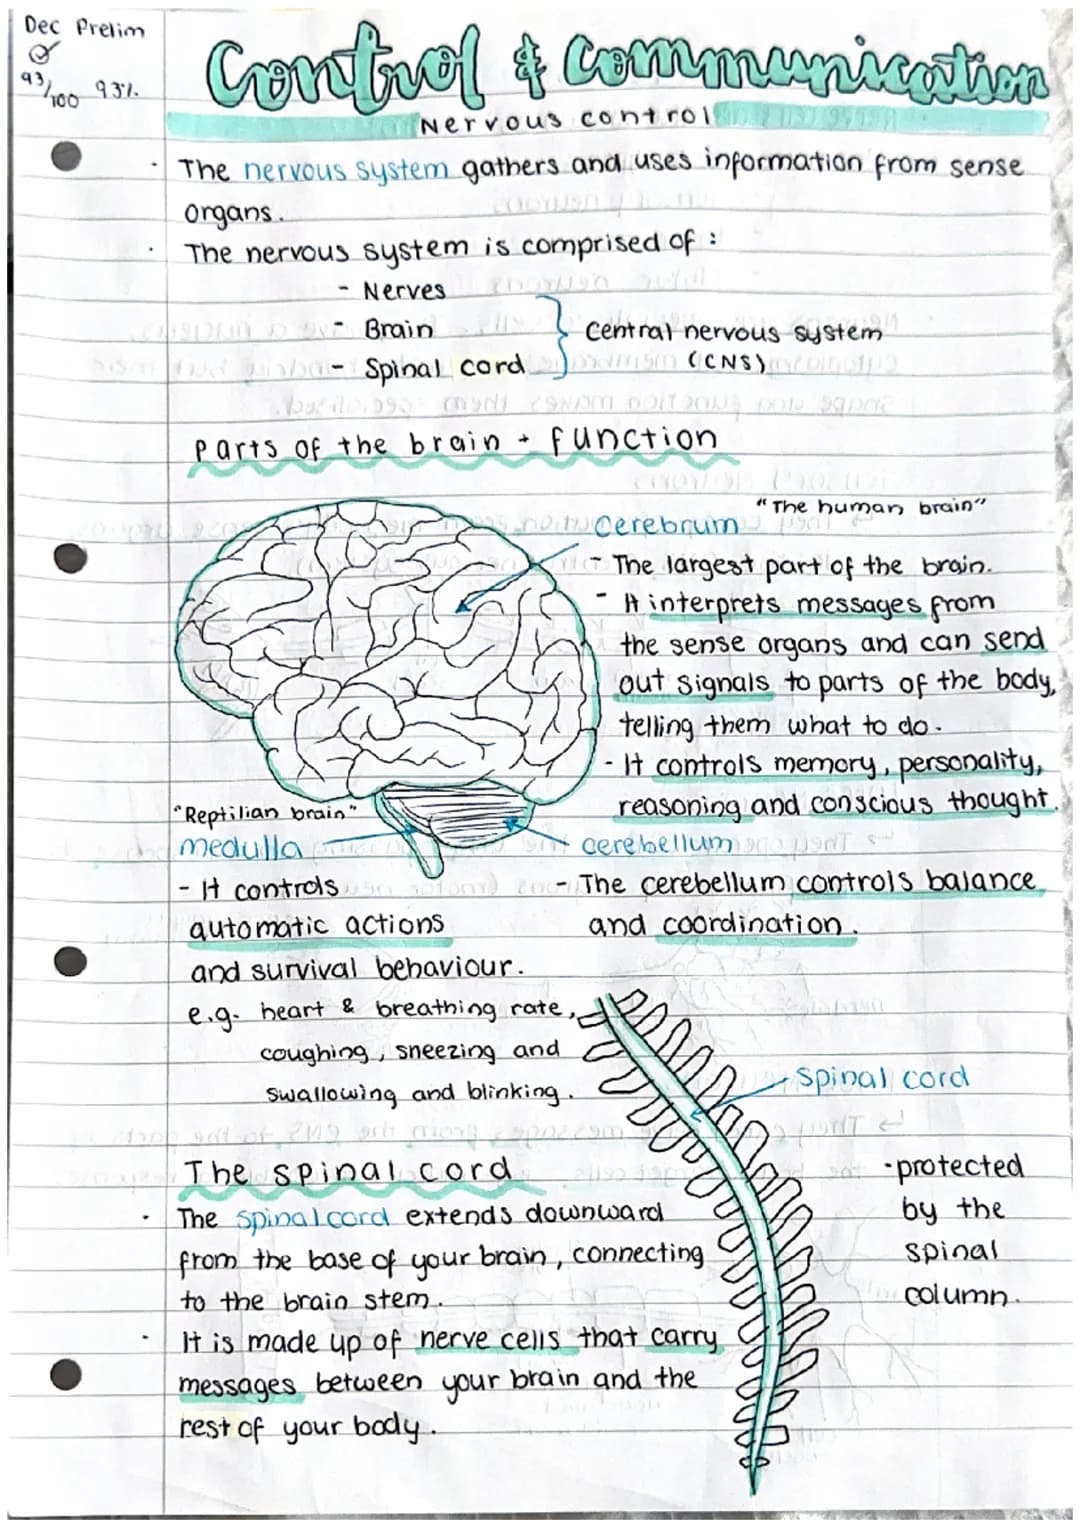 Dec Prelim
93/100 93%.
Control & Communication
Nervous control
· The nervous system gathers and uses information from sense
organs.
· The nervous system is comprised of :
- Nerves
- Brain
- Spinal cord
} Central nervous system
(CNS)
Parts of the brain + function
"The human brain"
Cerebrum
- The largest part of the brain.
- It interprets messages from
the sense organs and can send
out signals to parts of the body,
telling them what to do.
- It controls memory, personality,
reasoning and conscious thought.
"Reptilian brain"
medulla
- It controls
automatic actions
and survival behaviour.
e.g. heart & breathing rate,
coughing, sneezing and
swallowing and blinking.
cerebellum
- The cerebellum controls balance
and coordination.
Spinal cord
The spinal cord
· The spinal cord extends downward
from the base of your brain, connecting
to the brain stem.
· It is made up of nerve cells that carry
messages between your brain and the
rest of your body.
·protected
by the
spinal
column.